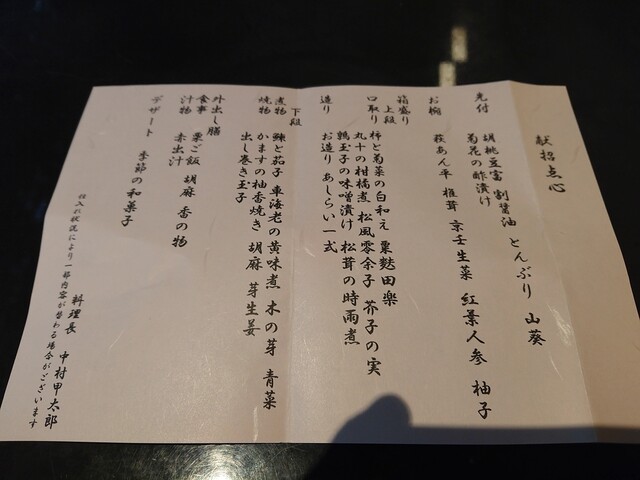 献招点心
先付
胡桃豆富 割醤油 とんぶり 山葵
菊花の酢漬け
お椀
萩あん平 椎茸 京壬生菜 紅葉人参 柚子
箱盛り
上段
口取り
柿と菊菜の白和え 粟麩田楽
丸十の柑橘煮 松風零余子 芥子の実
鶉玉子の味噌漬け 松茸の時雨煮
造り
お造り あしらい一式
下段
煮物
鰊と茄子 車海老の黄味煮 木の芽 青菜
焼物
かますの柚香焼き 胡麻 芽生姜
出し巻き玉子
外出し膳
食事
栗ご飯 胡麻 香の物
汁物
赤出汁
デザート 季節の和菓子
料理長 中村甲太郎
仕入れ状況により一部内容が替わる場合がございます